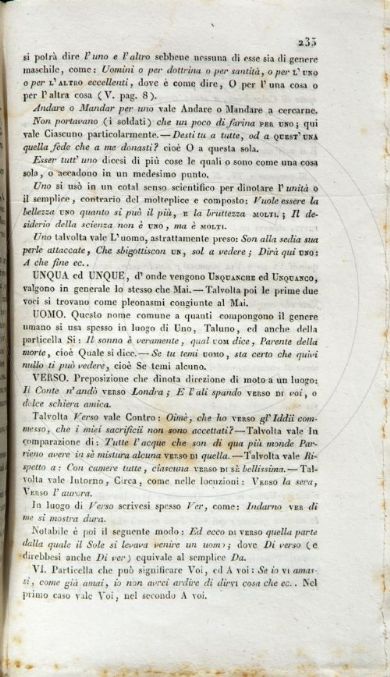 235
si potrà dire l'uno e l'altro sebbene nessuna di esse sia di genere
maschile, come: Uomini o per dottrina o per santità, o per L' UNO
o per L'ALTRO eccellenti, dove è come dire, O per l'una cosa o
per l'altra cosa (V. pag. 8).
Andare o Mandar per uno vale Andare o Mandare a cercarne.
Non portavano (i soldati) che un poco di farina PER UNO; qui
vale Ciascuno particolarmente.—Desti tu a tutte, od a QUEST'UNA
quella fede che a me donasti? cioè O a questa sola.
Esser tutt'uno dicesi di più cose le quali o sono come una cosa
sola, o accadono in un medesimo punto.
Uno si usò in un cotal senso scientifico per dinotare l'unità o
il semplice, contrario del molteplice e composto: Vuole essere la
bellezza UNO quanto si può il più, E la bruttezza MOLTI.; Il de-
siderio della scienza non è UNO, ma è MOLTI.
Uno talvolta vale L'uomo, astrattamente preso: Son alla sedia sua
perle attaccate, Che sbigottiscon UN, sol a vedere; Dirà qui UNO:
A che fine ec..
UNQUA ed UNQUE, d'onde vengono USQUANCHE ed USQUANCO,
valgono in generale lo stesso che Mai.—Talvolta poi le prime due
voci si trovano come pleonasmi congiunte al Mai.
UOMO. Questo nome comune a quanti compongono il genere
umano si usa spesso in luogo di Uno, Taluno, ed anche della
particella Si: Il sonno è veramente, qual UOM dice, Parente della
morte, cioè Quale si dice.—Se tu temi UOMO, sta certo che quivi
nullo ti può vedere, cioè Se temi alcuno.
VERSO. Preposizione che dinota direzione di moto a un luogo:
Il Conte n'andò VERSO Londra; E l'ali spando VERSO DI voi, o
dolce schiera amica.
Talvolta Verso vale Contro: Oimè, che ho VERSO gl'Iddii com-
messo, che i miei sacrificii non sono accettati?—Talvolta vale In
comparazione di: Tutte l'acque che son di qua più monde Par-
rieno avere in sè mistura alcuna VERSO DI quella.—Talvolta vale Ri-
spetto a: Con cumere tutte, ciascuna VERSO DI sè bellissima.—Tal-
volta vale Intorno, Circa, come nelle locuzioni: VERSO la sera,
VERSO l'aurora.
In luogo di Verso scrivesi spesso Ver, come: Indarno VER di
me si mostra dura.
Notabile è poi il seguente modo: Ed ecco DI VERSO quella parte
dalla quale il Sole si levava venire un uomo; dove Di verso (e
direbbesi anche Di ver) equivale al semplice Da.
VI. Particella che può significare Voi, ed A voi: Se io VI amas-
si, come già amai, io non avrei ardire di dirvi cosa che ec.. Nel
primo caso vale Voi, nel secondo A voi.